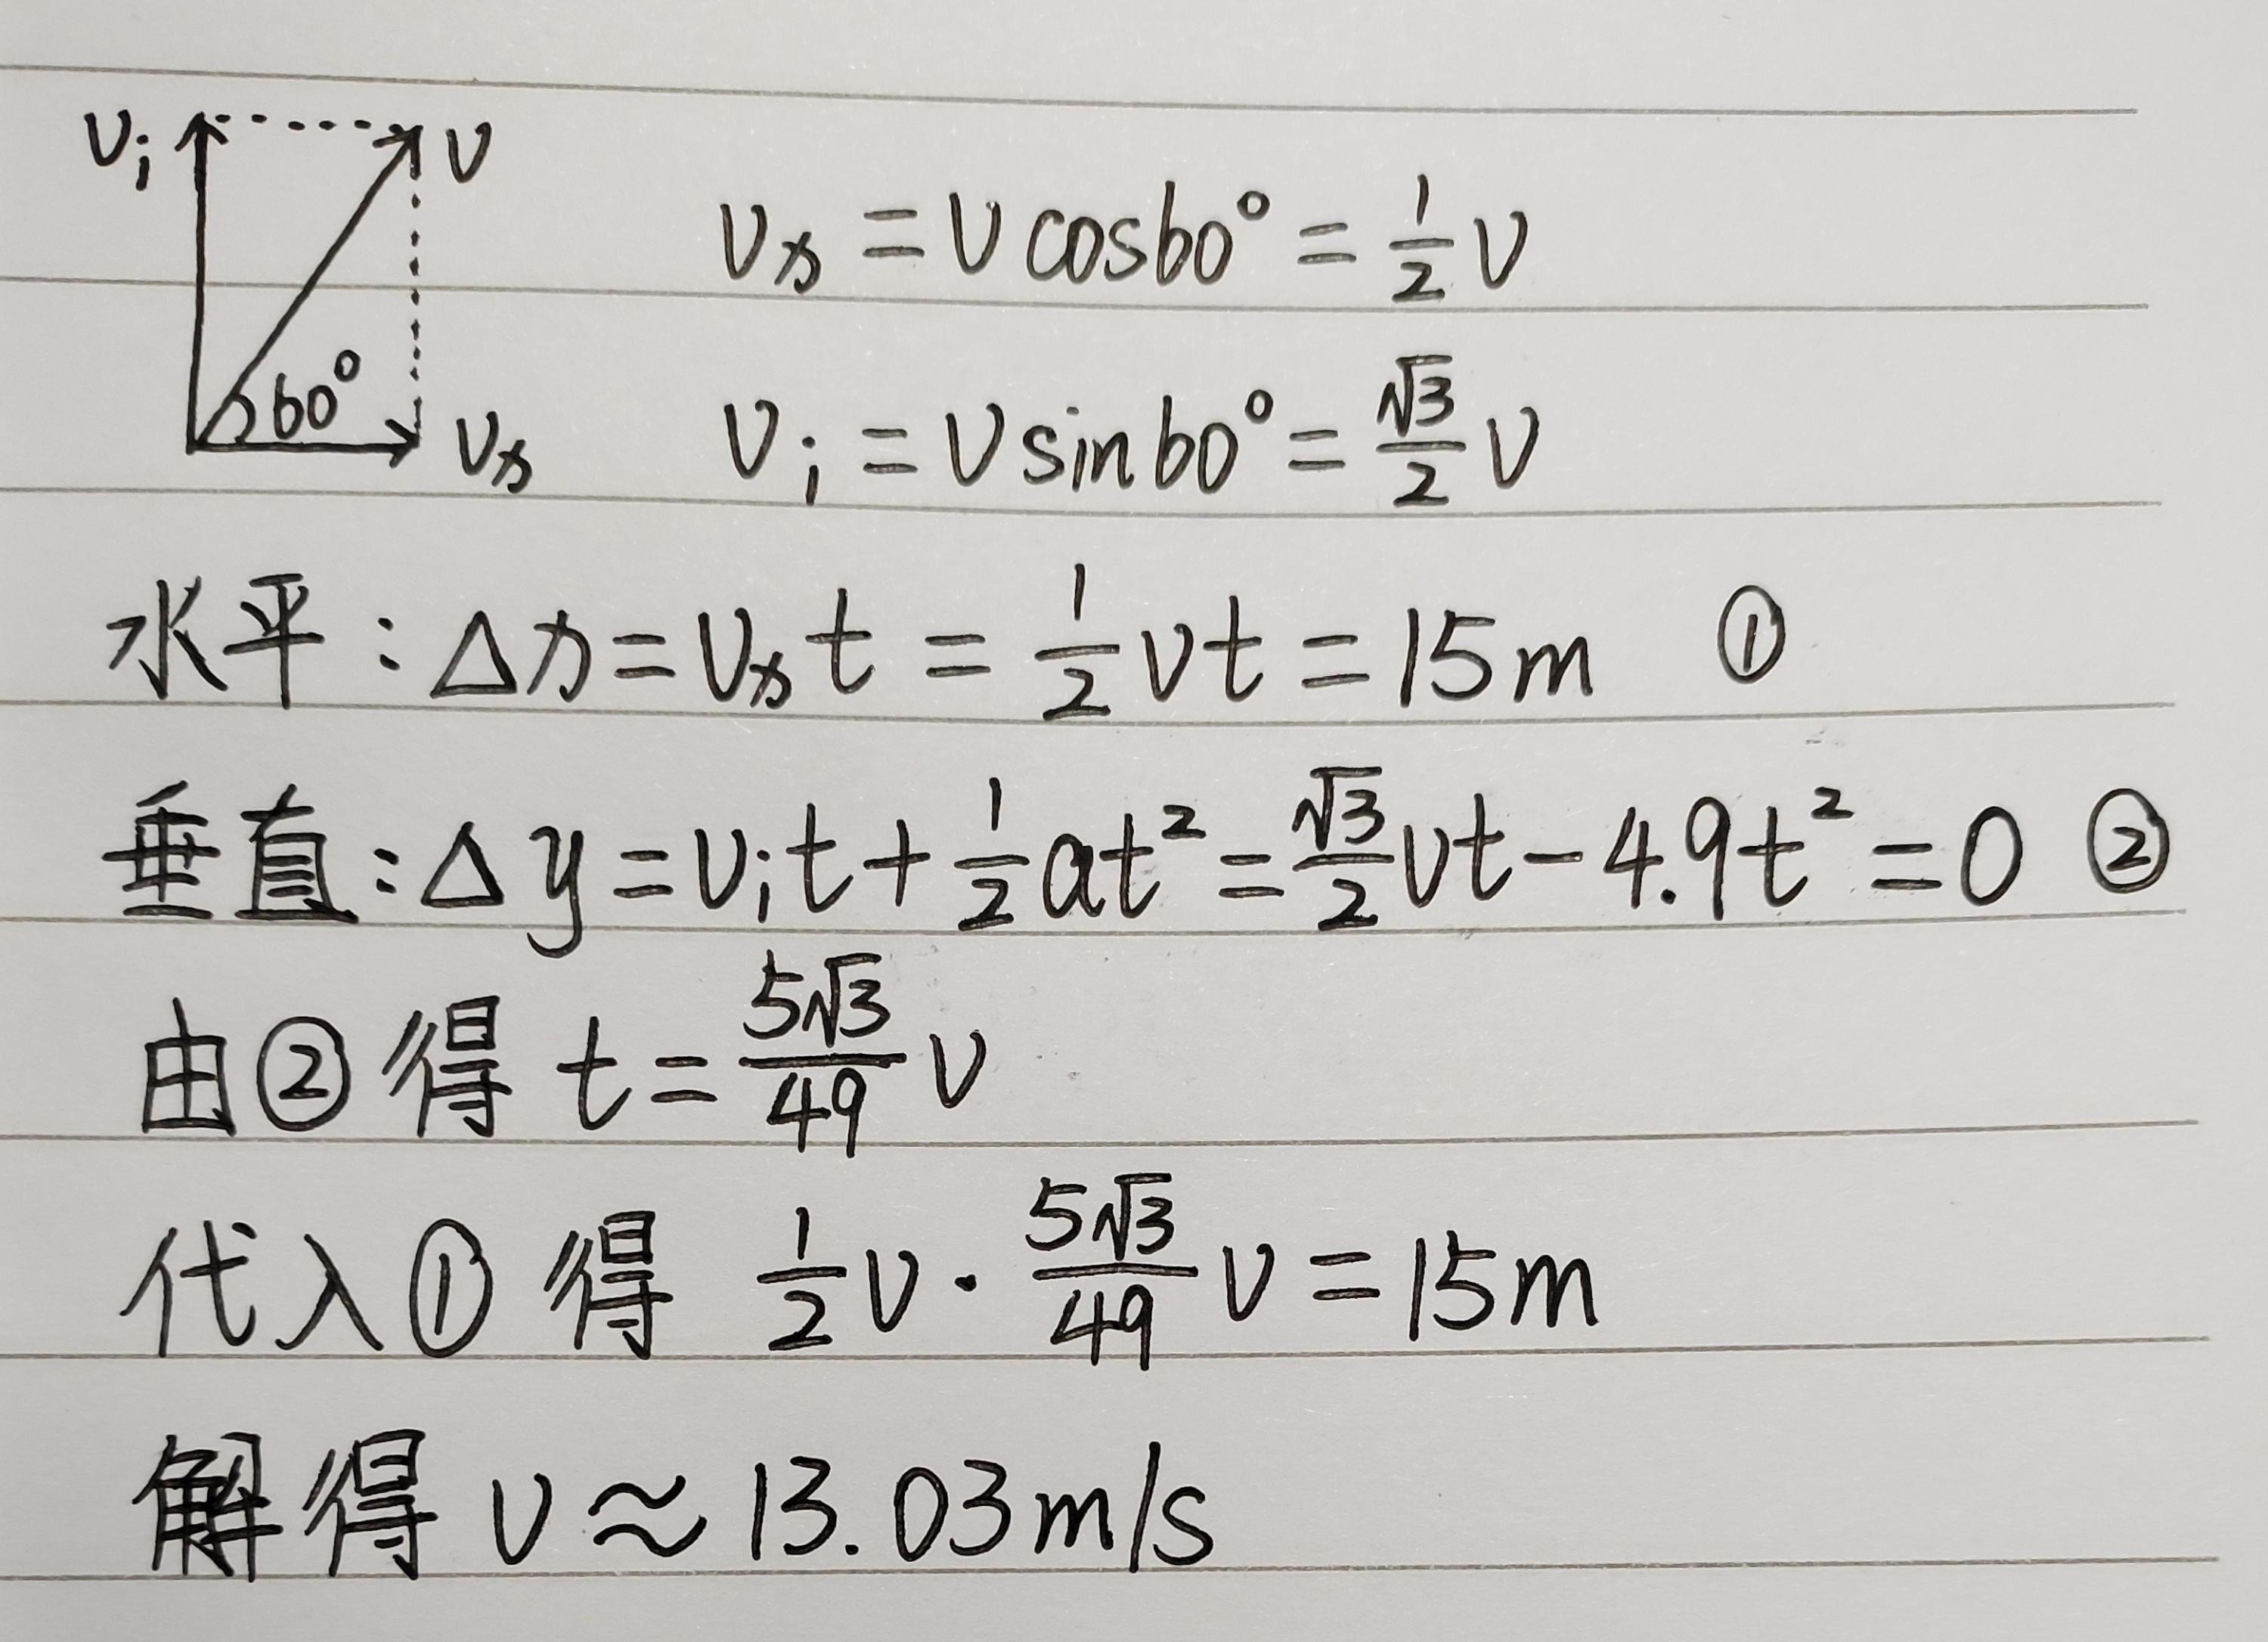 vᵢ v
60° vₓ
vₓ = v cos60° = 1/2 v
vᵢ = v sin60° = √3/2 v
水平：Δx = vₓt = 1/2 vt = 15m ①
垂直：Δy = vᵢt + 1/2 at² = √3/2 vt − 4.9t² = 0 ②
由②得 t = 5√3/49 v
代入①得 1/2 v · 5√3/49 v = 15m
解得 v ≈ 13.03m/s